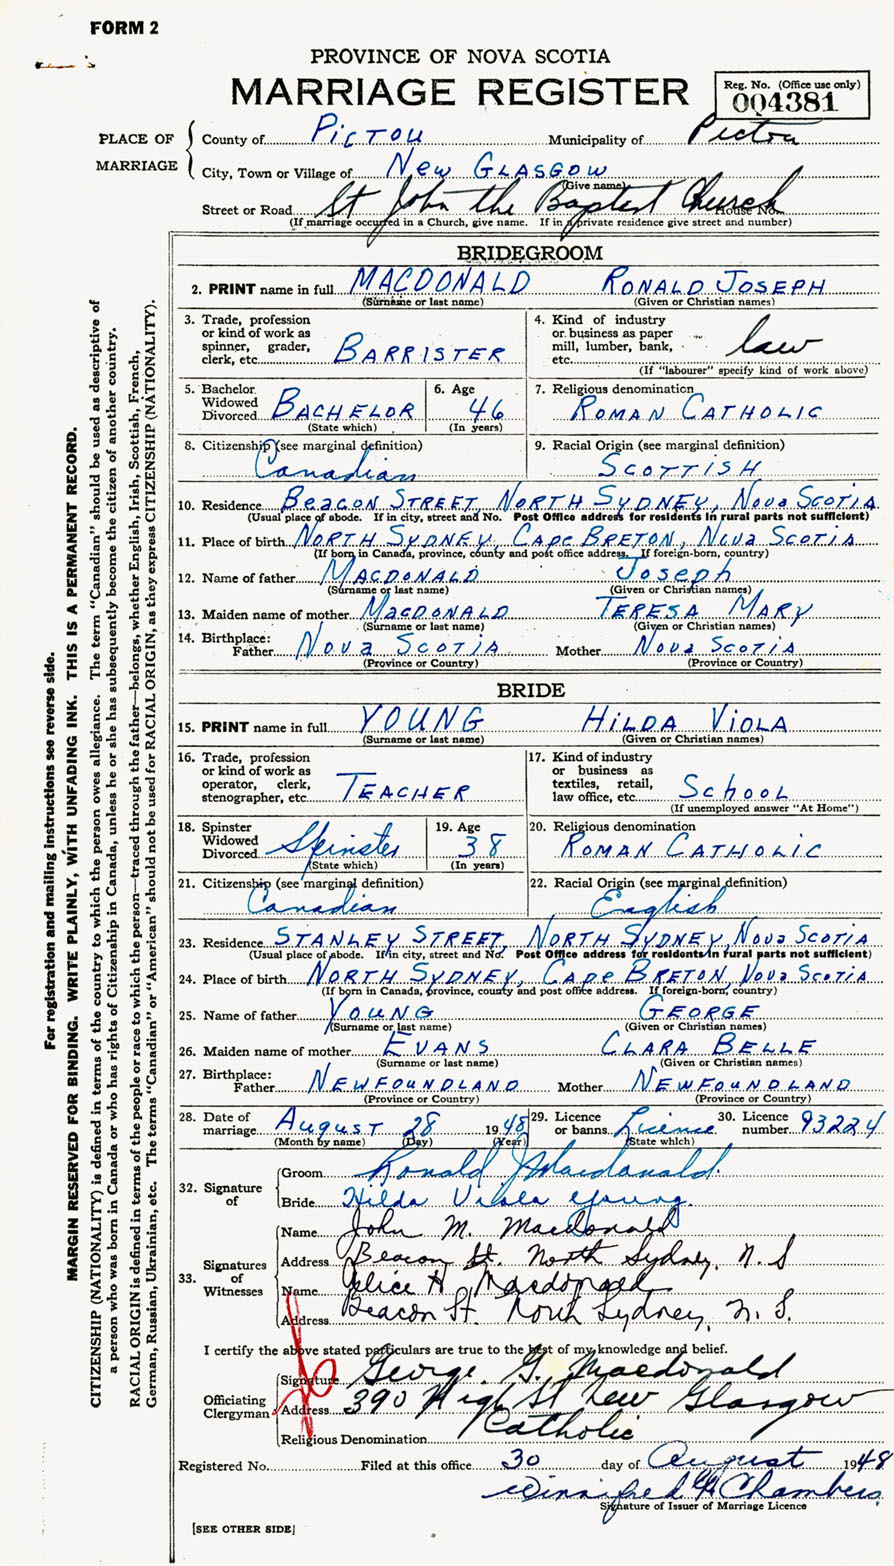 FORM 2
PROVINCE OF NOVA SCOTIA
MARRIAGE REGISTER
Reg. No. (Office use only)
004381
PLACE OF MARRIAGE
County of PICTOU Municipality of Pictou
City, Town or Village of NEW GLASGOW
(Give name)
Street or Road St John the Baptist Church House No.
(If marriage occurred in a Church, give name. If in a private residence give street and number)
BRIDEGROOM
2. PRINT name in full MACDONALD RONALD JOSEPH
(Surname or last name) (Given or Christian names)
3. Trade, profession or kind of work as spinner, grader, clerk, etc. BARRISTER
4. Kind of industry or business as paper mill, lumber, bank, etc. law
(If "labourer" specify kind of work above)
5. Bachelor Widowed Divorced BACHELOR
(State which)
6. Age 46
(In years)
7. Religious denomination
ROMAN CATHOLIC
8. Citizenship (see marginal definition)
Canadian
9. Racial Origin (see marginal definition)
SCOTTISH
10. Residence BEACON STREET NORTH SYDNEY, NOVA SCOTIA
(Usual place of abode. If in city, street and No. Post Office address for residents in rural parts not sufficient)
11. Place of birth NORTH SYDNEY, CAPE BRETON, NOVA SCOTIA
(If born in Canada, province, county and post office address. If foreign-born, country)
12. Name of father MACDONALD Joseph
(Surname or last name) (Given or Christian names)
13. Maiden name of mother MACDONALD TERESA MARY
(Surname or last name) (Given or Christian names)
14. Birthplace:
Father NOVA SCOTIA Mother NOVA SCOTIA
(Province or Country) (Province or Country)
BRIDE
15. PRINT name in full YOUNG HILDA VIOLA
(Surname or last name) (Given or Christian names)
16. Trade, profession or kind of work as operator, clerk, stenographer, etc. TEACHER
17. Kind of industry or business as textiles, retail, law office, etc. SCHOOL
(If unemployed answer "At Home")
18. Spinster Widowed Divorced Spinster
(State which)
19. Age 38
(In years)
20. Religious denomination
ROMAN CATHOLIC
21. Citizenship (see marginal definition)
Canadian
22. Racial Origin (see marginal definition)
English
23. Residence STANLEY STREET, NORTH SYDNEY, NOVA SCOTIA
(Usual place of abode. If in city, street and No. Post Office address for residents in rural parts not sufficient)
24. Place of birth NORTH SYDNEY, CAPE BRETON, NOVA SCOTIA
(If born in Canada, province, county and post office address. If foreign-born, country)
25. Name of father YOUNG GEORGE
(Surname or last name) (Given or Christian names)
26. Maiden name of mother EVANS CLARA BELLE
(Surname or last name) (Given or Christian names)
27. Birthplace:
Father NEWFOUNDLAND Mother NEWFOUNDLAND
(Province or Country) (Province or Country)
28. Date of marriage AUGUST 28 1948
(Month by name) (Day) (Year)
29. Licence or banns Licence
(State which)
30. Licence number 93224
32. Signature of
Groom Ronald J Macdonald.
Bride Hilda Viola Young.
33. Signatures of Witnesses
Name John M. Macdonald
Address Beacon St. North Sydney, N.S
Name Alice H Macdonald
Address Beacon St. North Sydney, N.S.
I certify the above stated particulars are true to the best of my knowledge and belief.
Officiating Clergyman
Signature George G. Macdonald
Address 390 High St New Glasgow
Religious Denomination Catholic
Registered No. Filed at this office 30 day of August 1948
Winnifred H Chambers
Signature of Issuer of Marriage Licence
[SEE OTHER SIDE]
For registration and mailing instructions see reverse side.
MARGIN RESERVED FOR BINDING. WRITE PLAINLY, WITH UNFADING INK. THIS IS A PERMANENT RECORD.
CITIZENSHIP (NATIONALITY) is defined in terms of the country to which the person owes allegiance. The term "Canadian" should be used as descriptive of
a person who was born in Canada or who has rights of Citizenship in Canada, unless he or she has subsequently become the citizen of another country.
RACIAL ORIGIN is defined in terms of the people or race to which the person—traced through the father—belongs, whether English, Irish, Scottish, French,
German, Russian, Ukrainian, etc. The terms "Canadian" or "American" should not be used for RACIAL ORIGIN, as they express CITIZENSHIP (NATIONALITY).